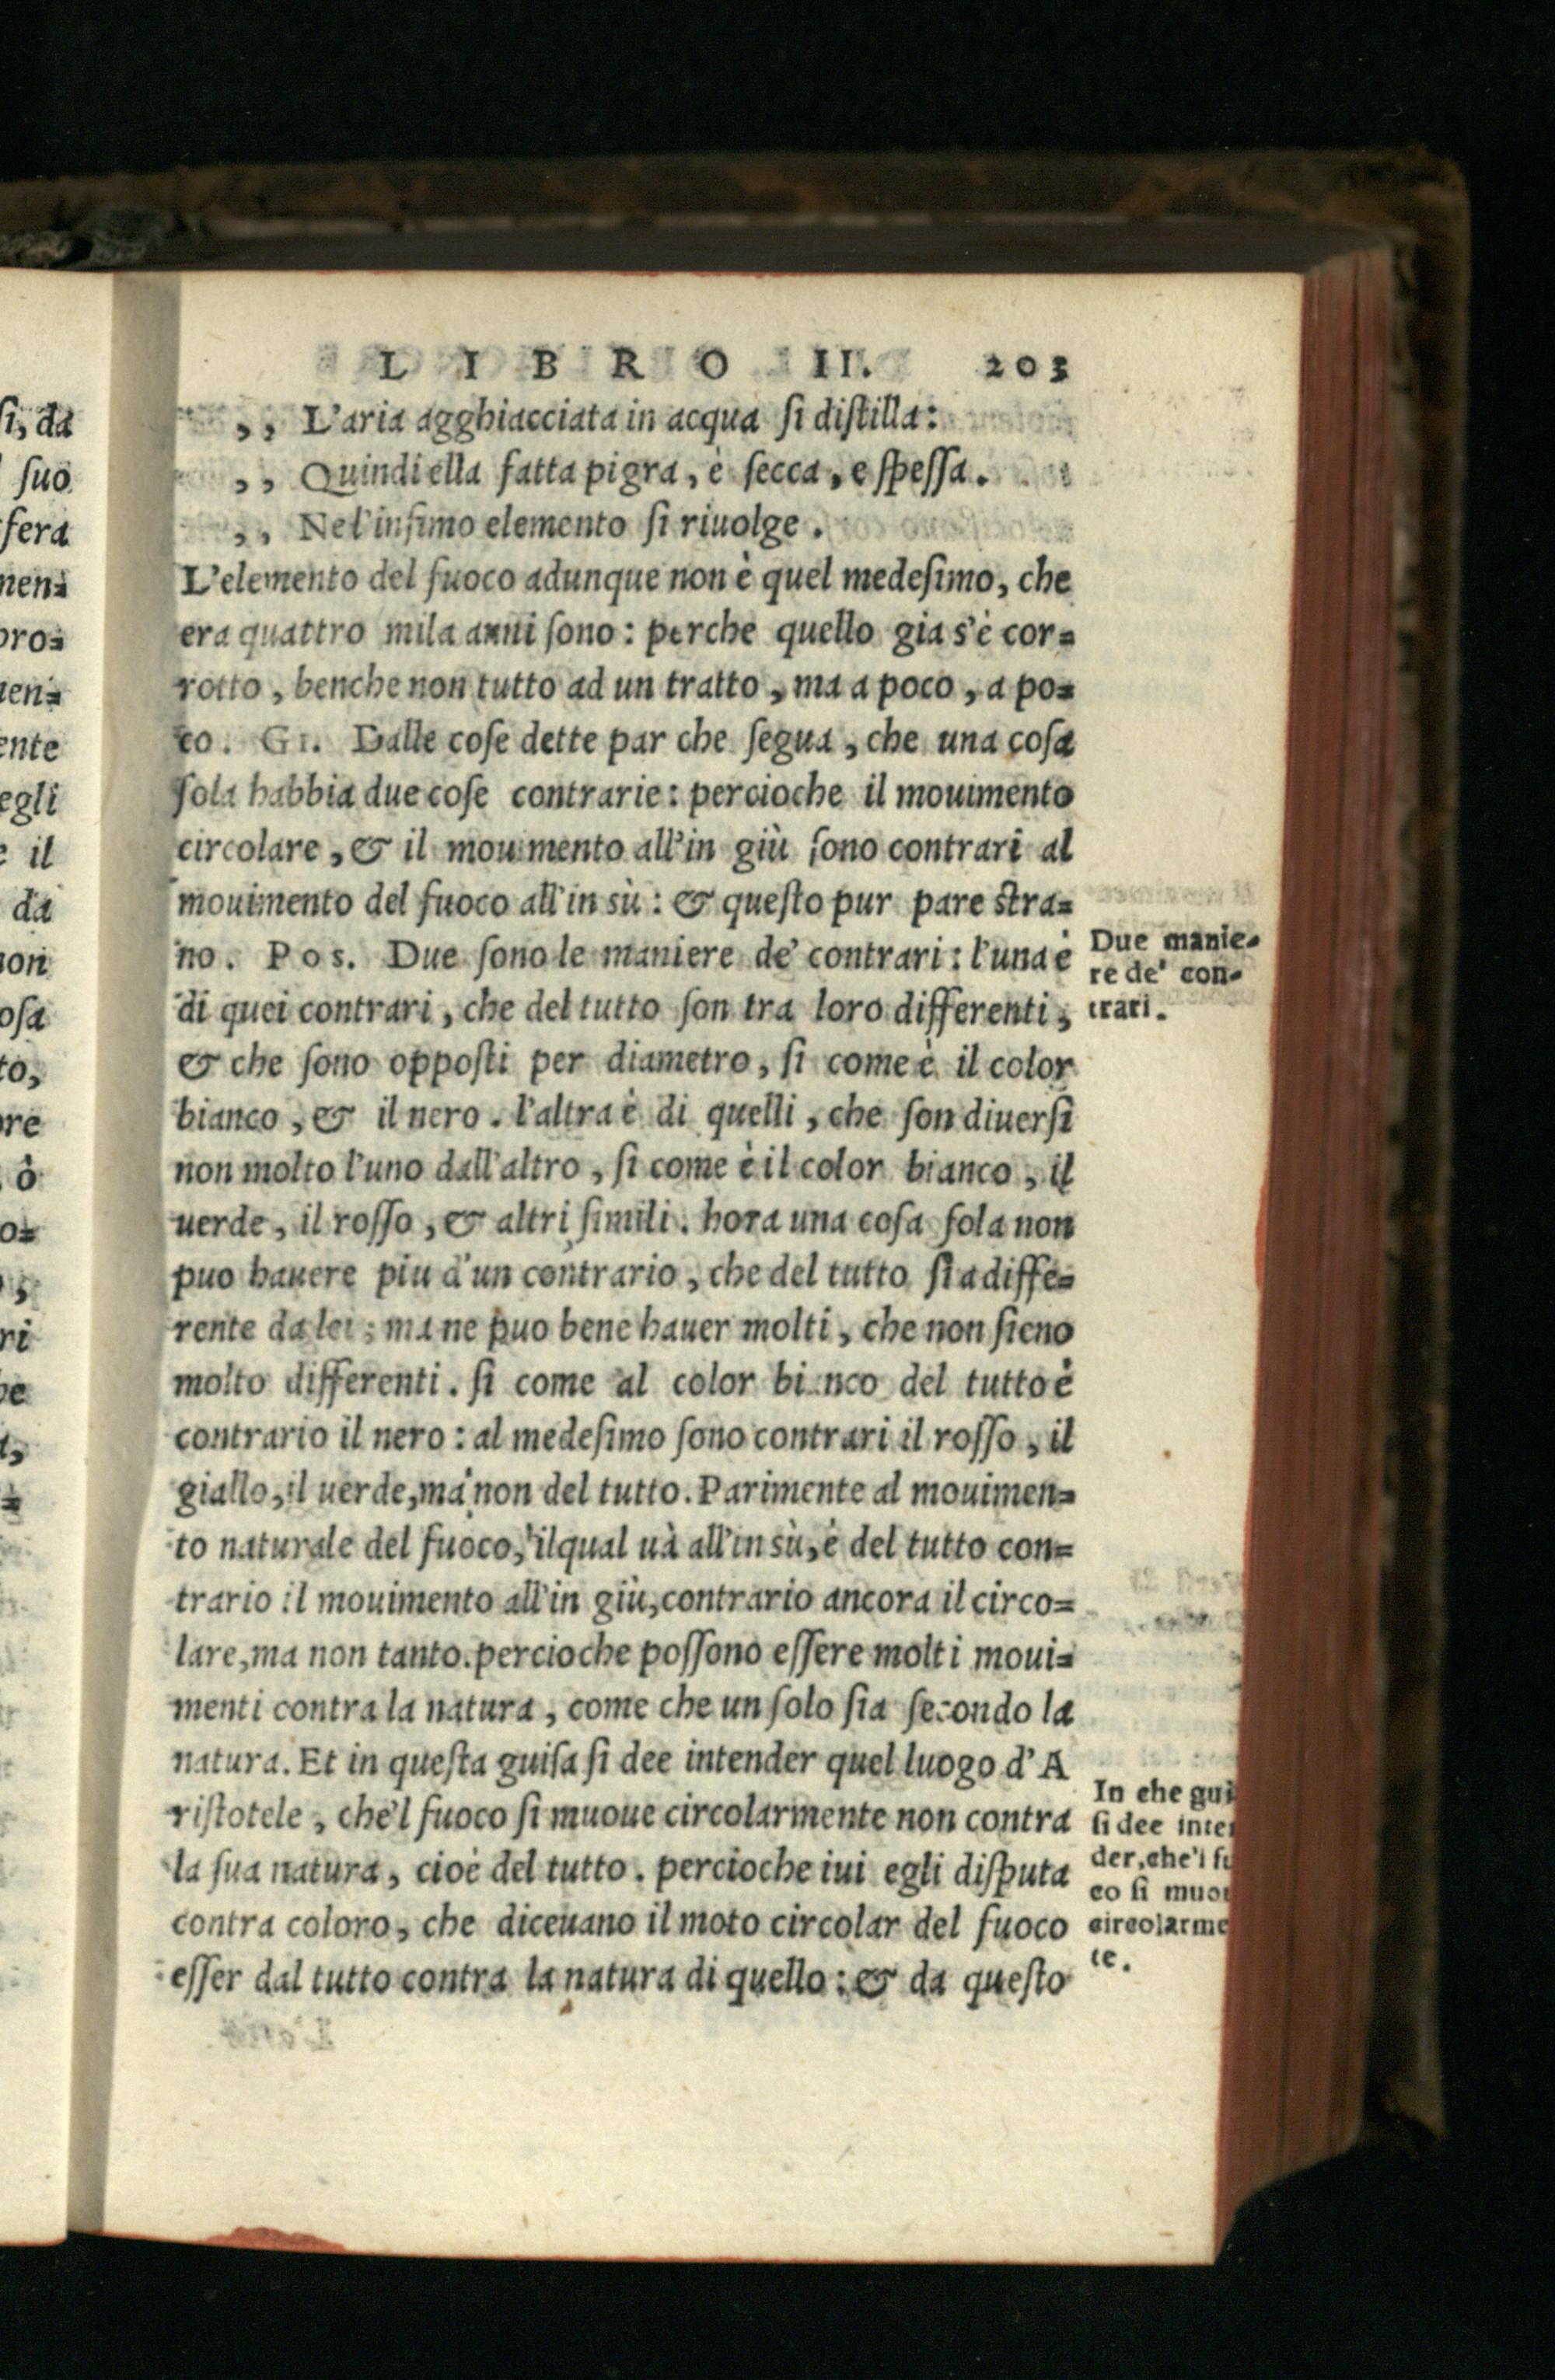 LIBRO II. 203
,, L'aria agghiacciata in acqua ſi diſtilla:
,, Quindi ella fatta pigra, è ſecca, e ſpeſſa.
,, Nel'infimo elemento ſi riuolge.
L'elemento del fuoco adunque non è quel medeſimo, che
era quattro mila anni ſono: perche quello gia s'è cor=
rotto, benche non tutto ad un tratto, ma a poco, a po=
co. GI. Dalle coſe dette par che ſegua, che una coſa
ſola habbia due coſe contrarie: percioche il mouimento
circolare, & il mouimento all'in giù ſono contrari al
mouimento del fuoco all'in sù: & queſto pur pare stra=
no. Pos. Due ſono le maniere de' contrari: l'una è
di quei contrari, che del tutto ſon tra loro differenti,
& che ſono oppoſti per diametro, ſi come è il color
bianco, & il nero. l'altra è di quelli, che ſon diuerſi
non molto l'uno dall'altro, ſi come è il color bianco, il
uerde, il roſſo, & altri ſimili. hora una coſa ſola non
puo hauere piu d'un contrario, che del tutto ſia diffe=
rente da lei: ma ne puo bene hauer molti, che non ſieno
molto differenti. ſi come al color bianco del tutto è
contrario il nero: al medeſimo ſono contrari il roſſo, il
giallo, il uerde, ma non del tutto. Parimente al mouimen=
to naturale del fuoco, ilqual uà all'in sù, è del tutto con=
trario il mouimento all'in giù, contrario ancora il circo=
lare, ma non tanto. percioche poſſono eſſere molti moui=
menti contra la natura, come che un ſolo ſia ſecondo la
natura. Et in queſta guiſa ſi dee intender quel luogo d'A
riſtotele, che'l fuoco ſi muoue circolarmente non contra
la ſua natura, cioè del tutto. percioche iui egli diſputa
contra coloro, che diceuano il moto circolar del fuoco
eſſer dal tutto contra la natura di quello: & da queſto
Due manie=
re de' con=
trari.
In che gui
ſi dee inter
der, che'l fu
co ſi muou
circolarme
te.
ſi, da
ſuo
fera
men=
pro=
uen=
ente
egli
e il
da
non
oſa
to,
ore
ò
o=
,
ri
he
=